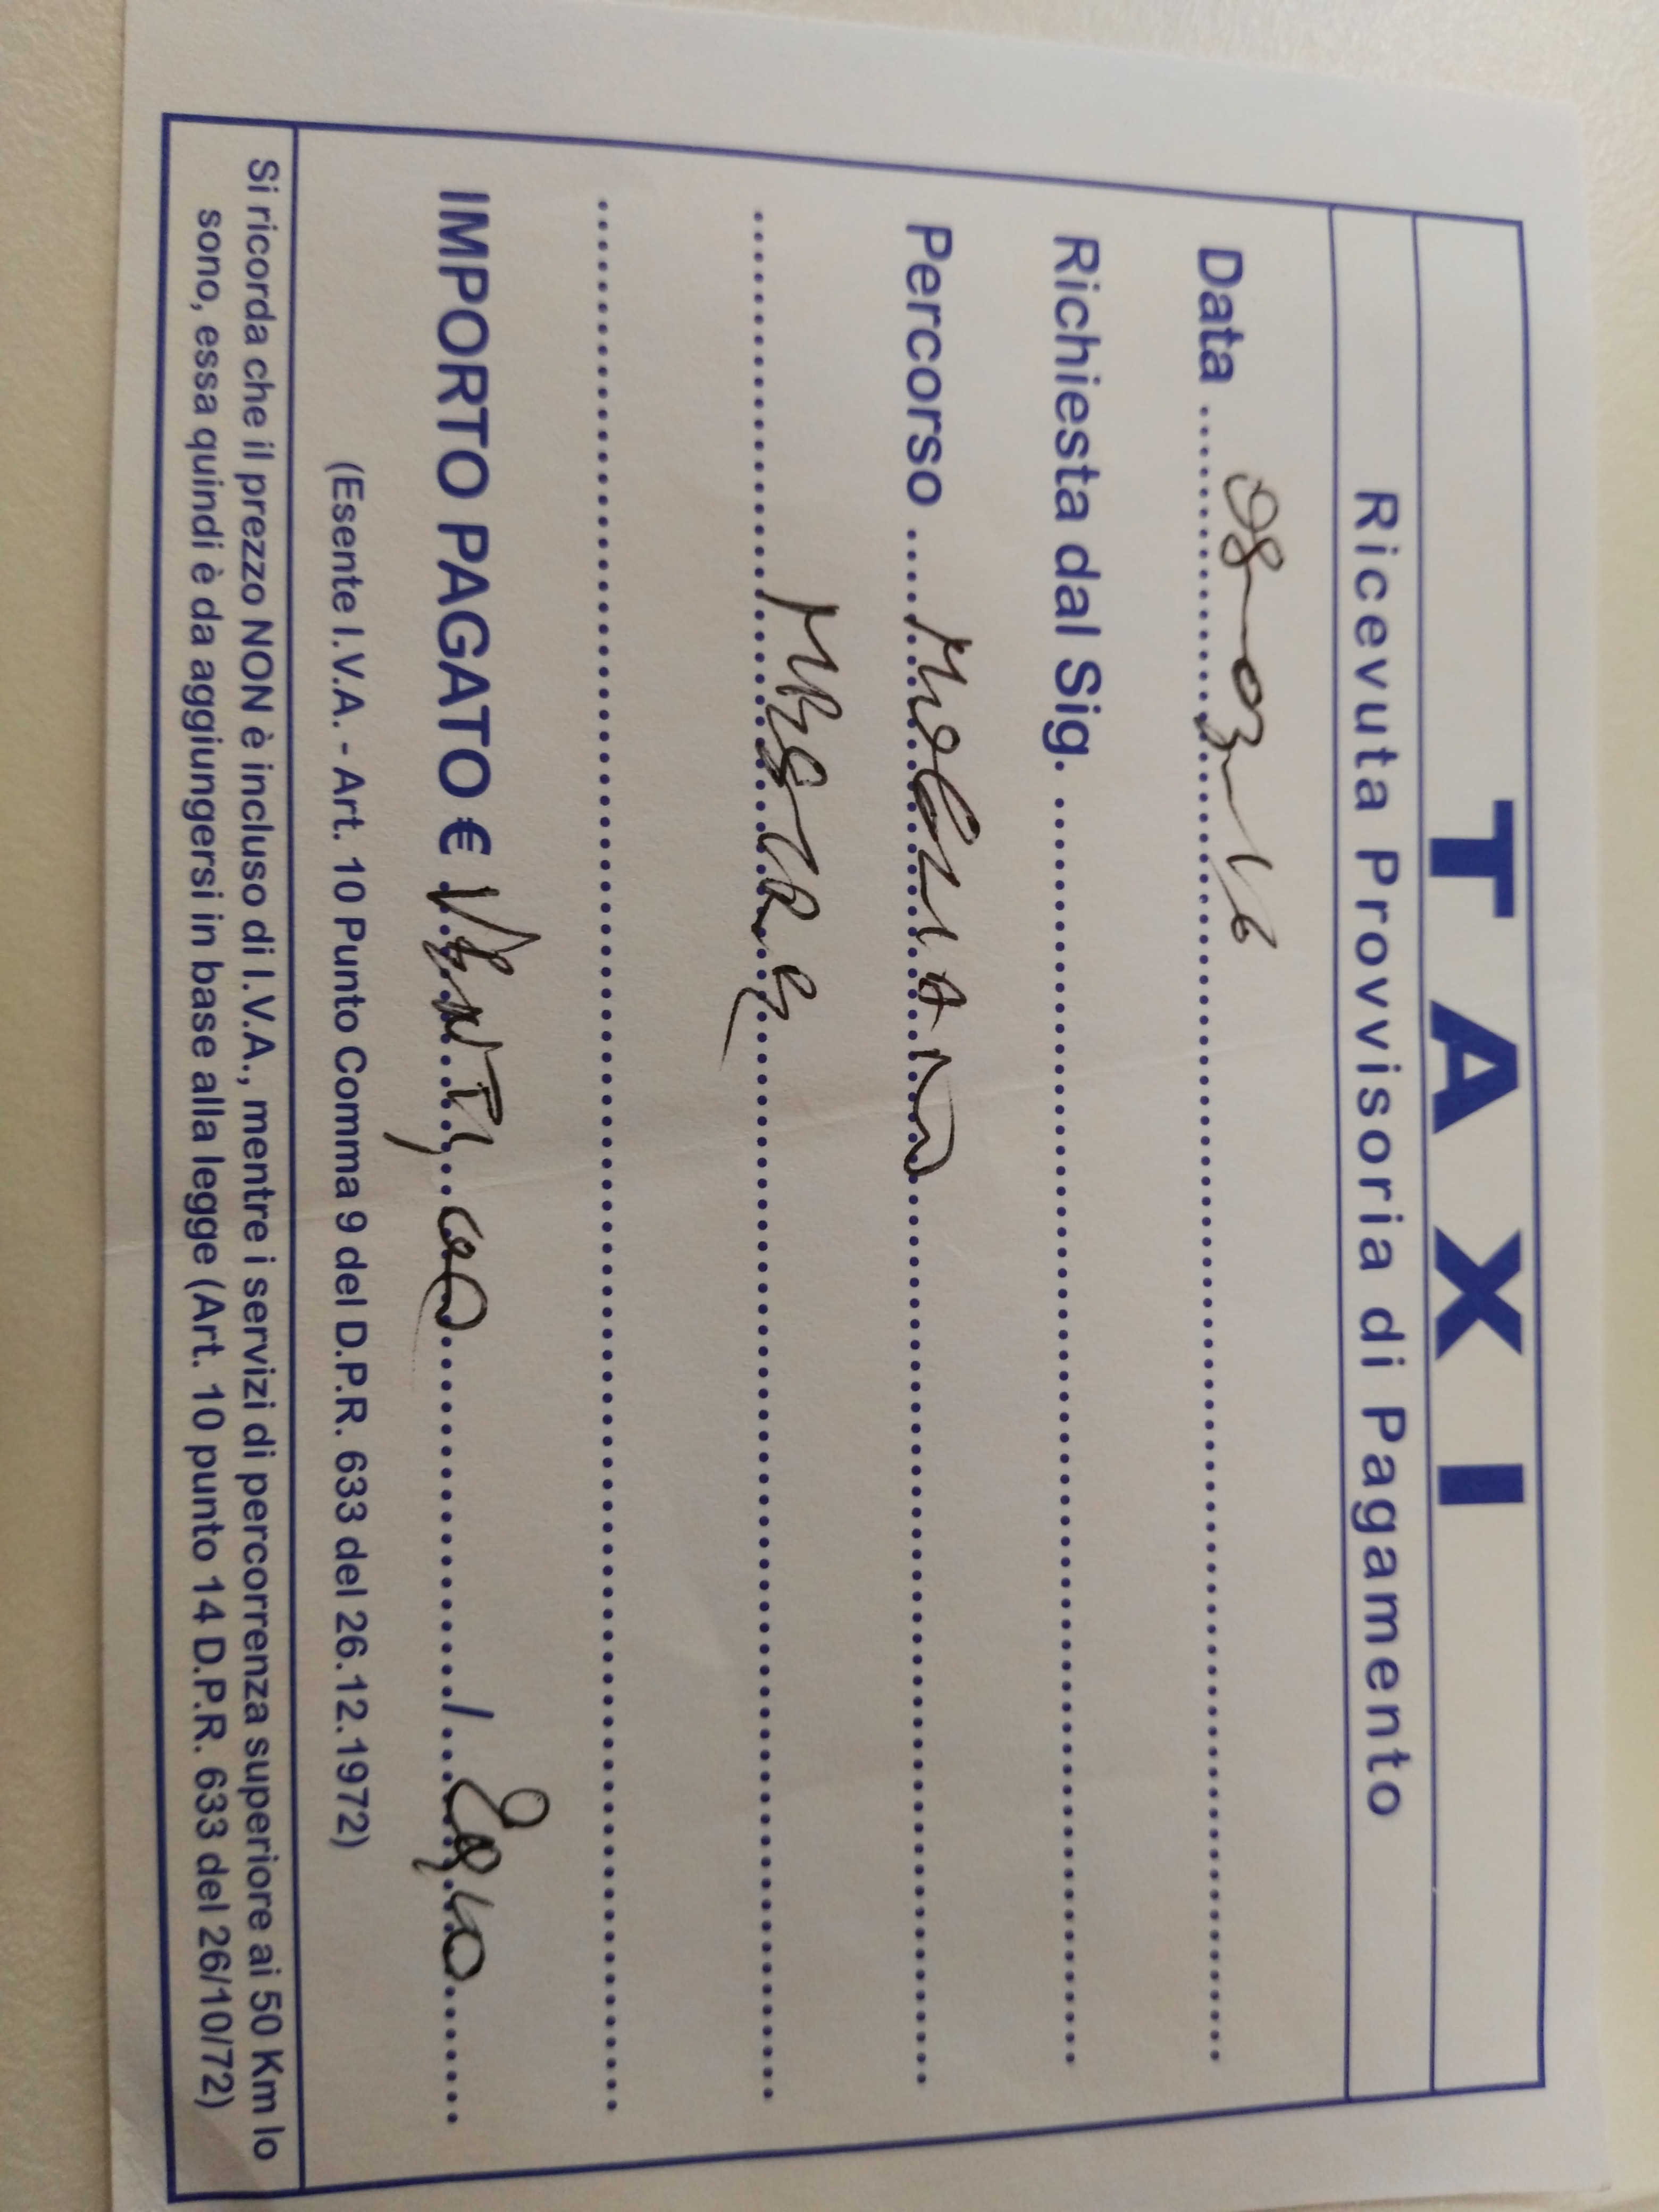 TAXI
Ricevuta Provvisoria di Pagamento
Data ........ 08-03-16 ........
Richiesta dal Sig. ........
Percorso .... MOGLIANO ........
........ MESTRE ........
........
IMPORTO PAGATO € VENTI,00 ......../........
(Esente I.V.A. - Art. 10 Punto Comma 9 del D.P.R. 633 del 26.12.1972)
Si ricorda che il prezzo NON è incluso di I.V.A., mentre i servizi di percorrenza superiore ai 50 Km lo
sono, essa quindi è da aggiungersi in base alla legge (Art. 10 punto 14 D.P.R. 633 del 26/10/72)